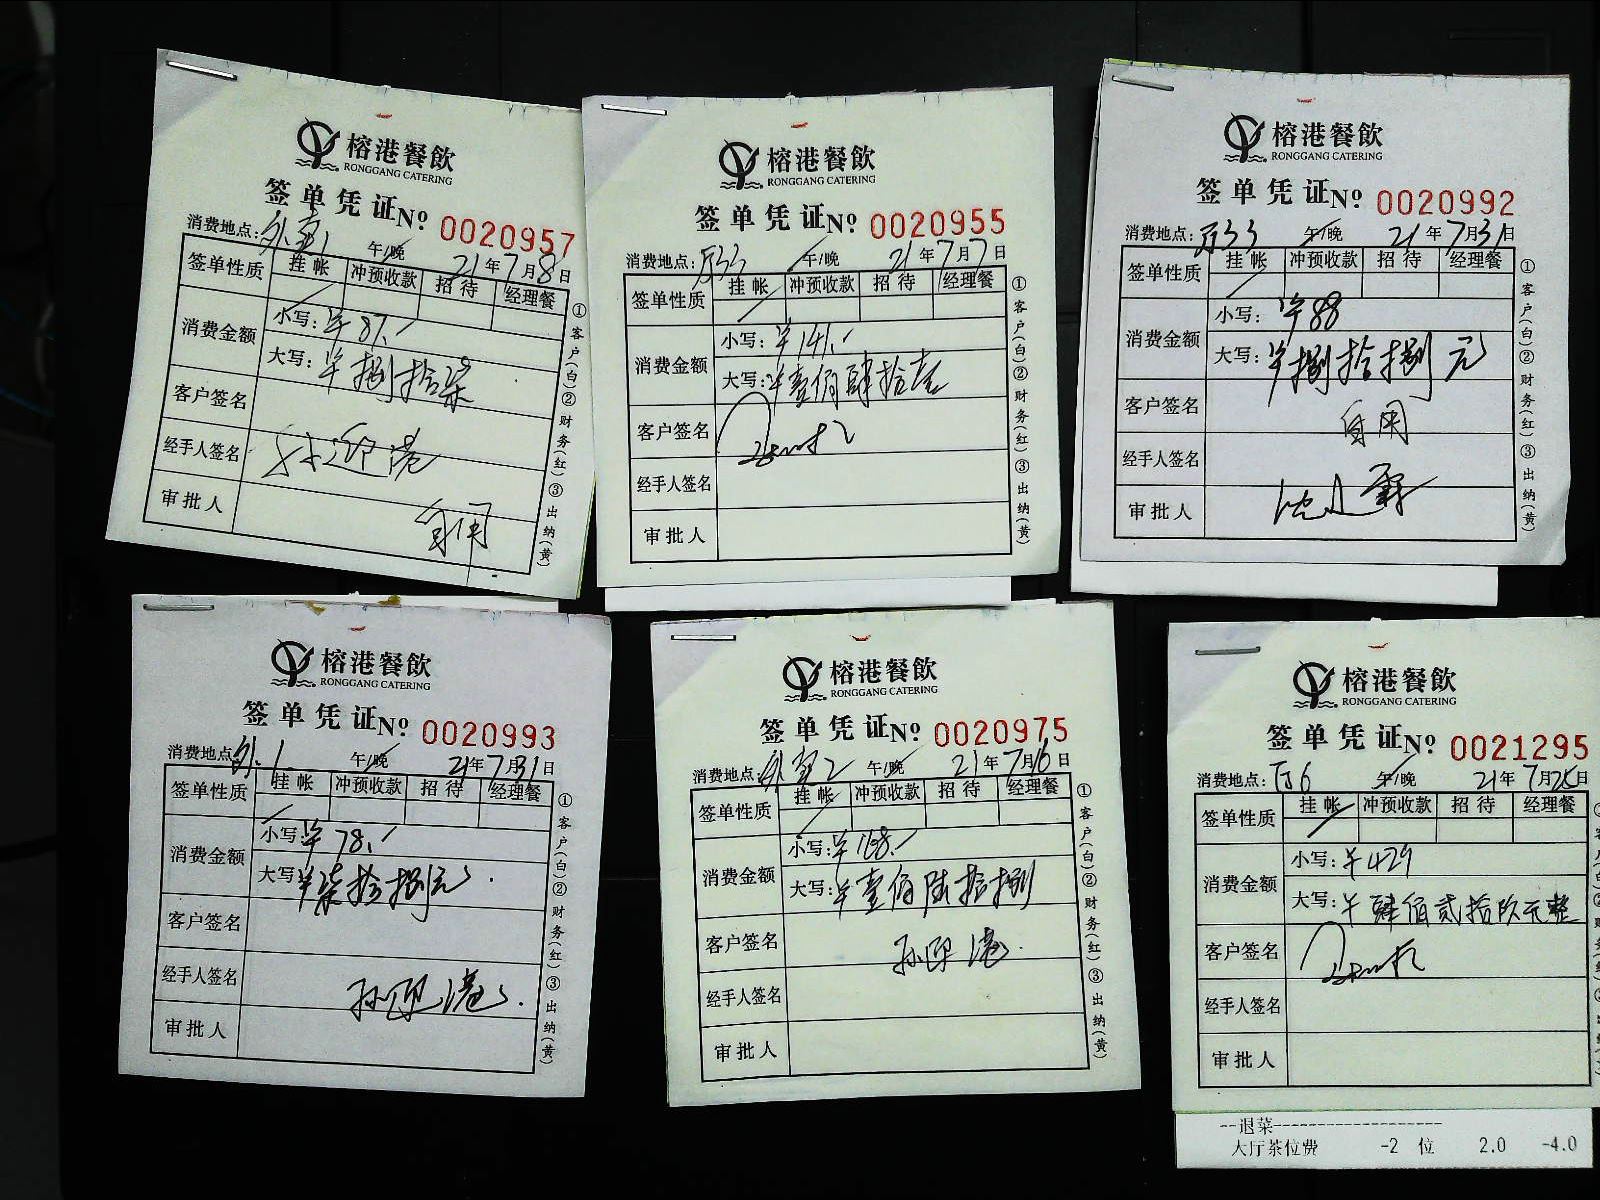 榕港餐飲
RONGGANG CATERING
签单凭证 № 0020957
消费地点: 午/晚 21年7月8日
签单性质 挂帐 冲预收款 招待 经理餐
消费金额 小写: ¥87.
大写: ¥捌拾柒
客户签名
经手人签名
审批人 自用
①客户(白)②财务(红)③出纳(黄)
榕港餐飲
RONGGANG CATERING
签单凭证 № 0020955
消费地点: 厅33 午/晚 21年7月7日
签单性质 挂帐 冲预收款 招待 经理餐
消费金额 小写: ¥141.
大写: ¥壹佰肆拾壹
客户签名
经手人签名
审批人
①客户(白)②财务(红)③出纳(黄)
榕港餐飲
RONGGANG CATERING
签单凭证 № 0020992
消费地点: 厅33 午/晚 21年7月31日
签单性质 挂帐 冲预收款 招待 经理餐
消费金额 小写: ¥88
大写: ¥捌拾捌元
客户签名 自用
经手人签名
审批人
①客户(白)②财务(红)③出纳(黄)
榕港餐飲
RONGGANG CATERING
签单凭证 № 0020993
消费地点: 外.1 午/晚 21年7月31日
签单性质 挂帐 冲预收款 招待 经理餐
消费金额 小写: ¥78.
大写: ¥柒拾捌元
客户签名
经手人签名
审批人
①客户(白)②财务(红)③出纳(黄)
榕港餐飲
RONGGANG CATERING
签单凭证 № 0020975
消费地点: 午/晚 21年7月16日
签单性质 挂帐 冲预收款 招待 经理餐
消费金额 小写: ¥168.
大写: ¥壹佰陆拾捌
客户签名
经手人签名
审批人
①客户(白)②财务(红)③出纳(黄)
榕港餐飲
RONGGANG CATERING
签单凭证 № 0021295
消费地点: 厅6 午/晚 21年7月25日
签单性质 挂帐 冲预收款 招待 经理餐
消费金额 小写: ¥429
大写: ¥肆佰贰拾玖元整
客户签名
经手人签名
审批人
--退菜--------------------
大厅茶位费 -2 位 2.0 -4.0